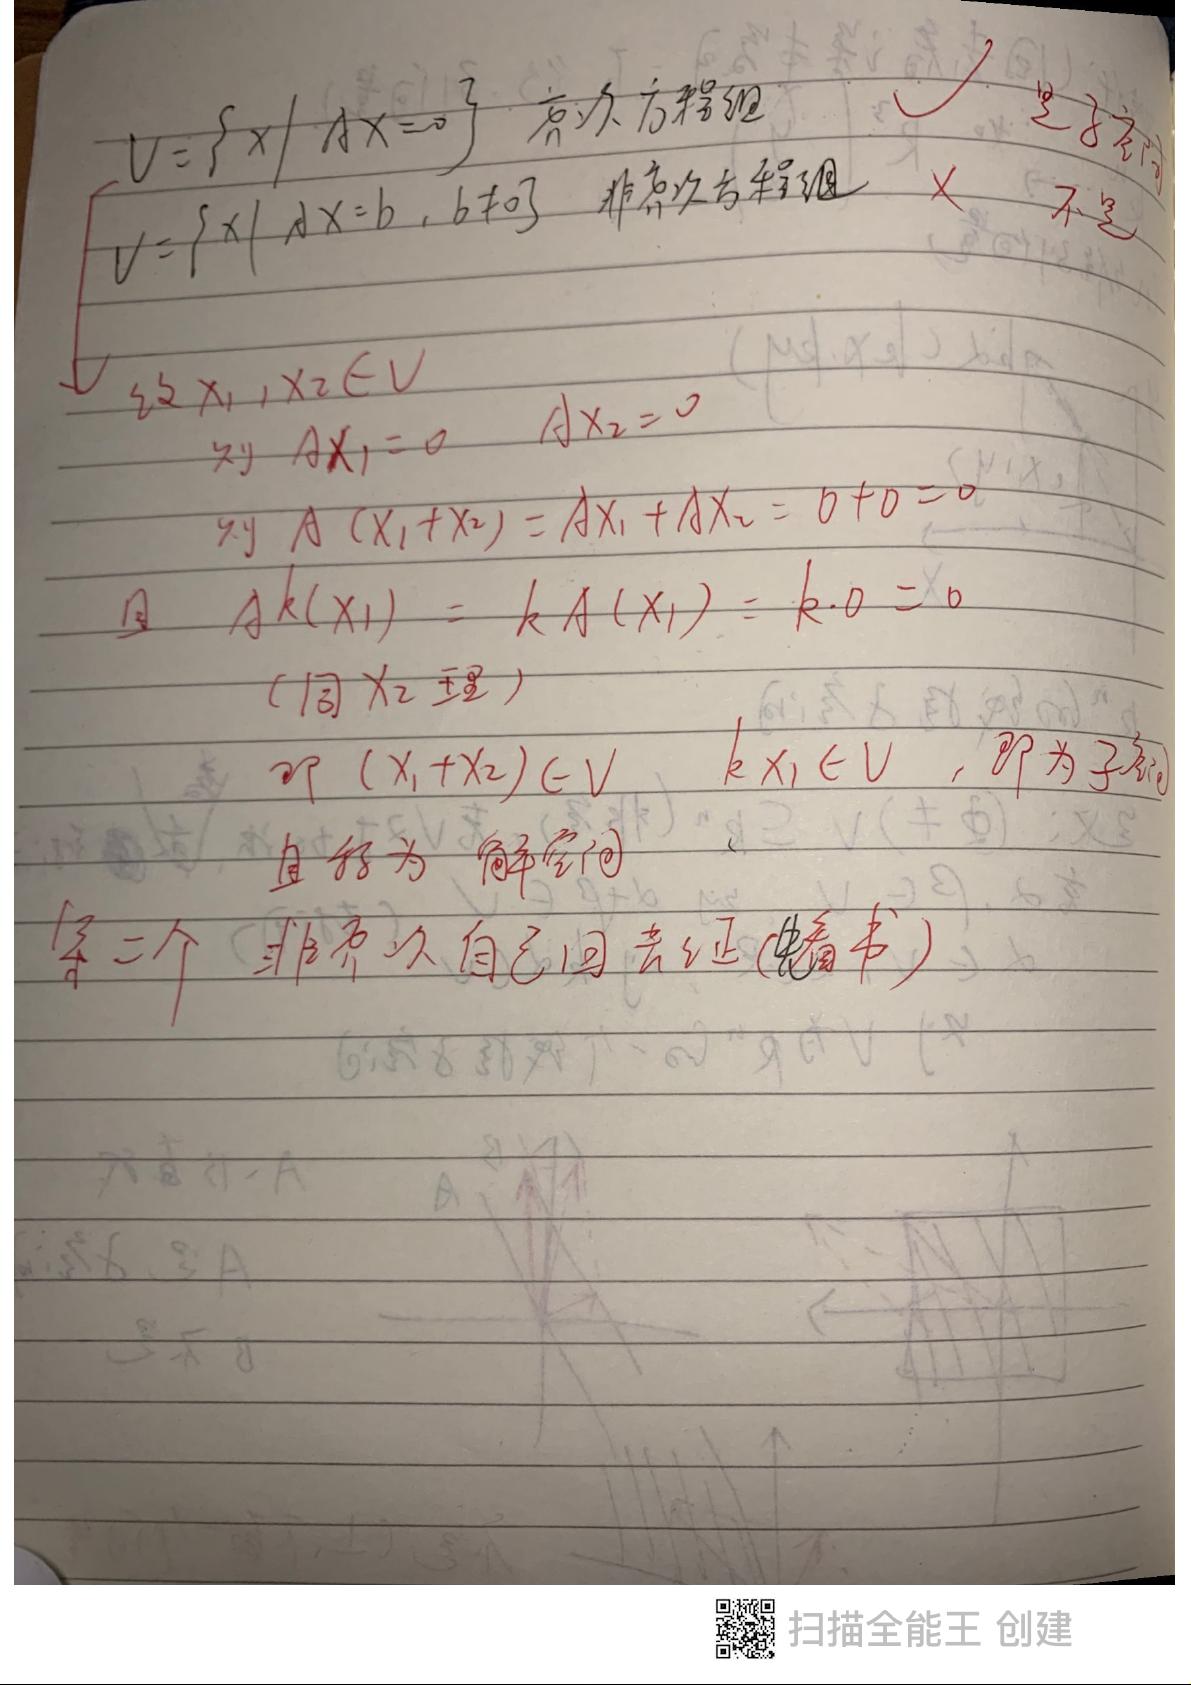 V={x|AX=0} 齐次方程组 ✓ 是子空间
V={x|AX=b, b≠0} 非齐次方程组 × 不是
设 X₁, X₂∈V
则 AX₁=0 AX₂=0
则 A(X₁+X₂)=AX₁+AX₂=0+0=0
且 Ak(X₁) = kA(X₁) = k·0=0
(同X₂理)
即 (X₁+X₂)∈V kX₁∈V, 即为子空间
且称为 解空间
第二个 非齐次自己回去证(看书)
扫描全能王 创建